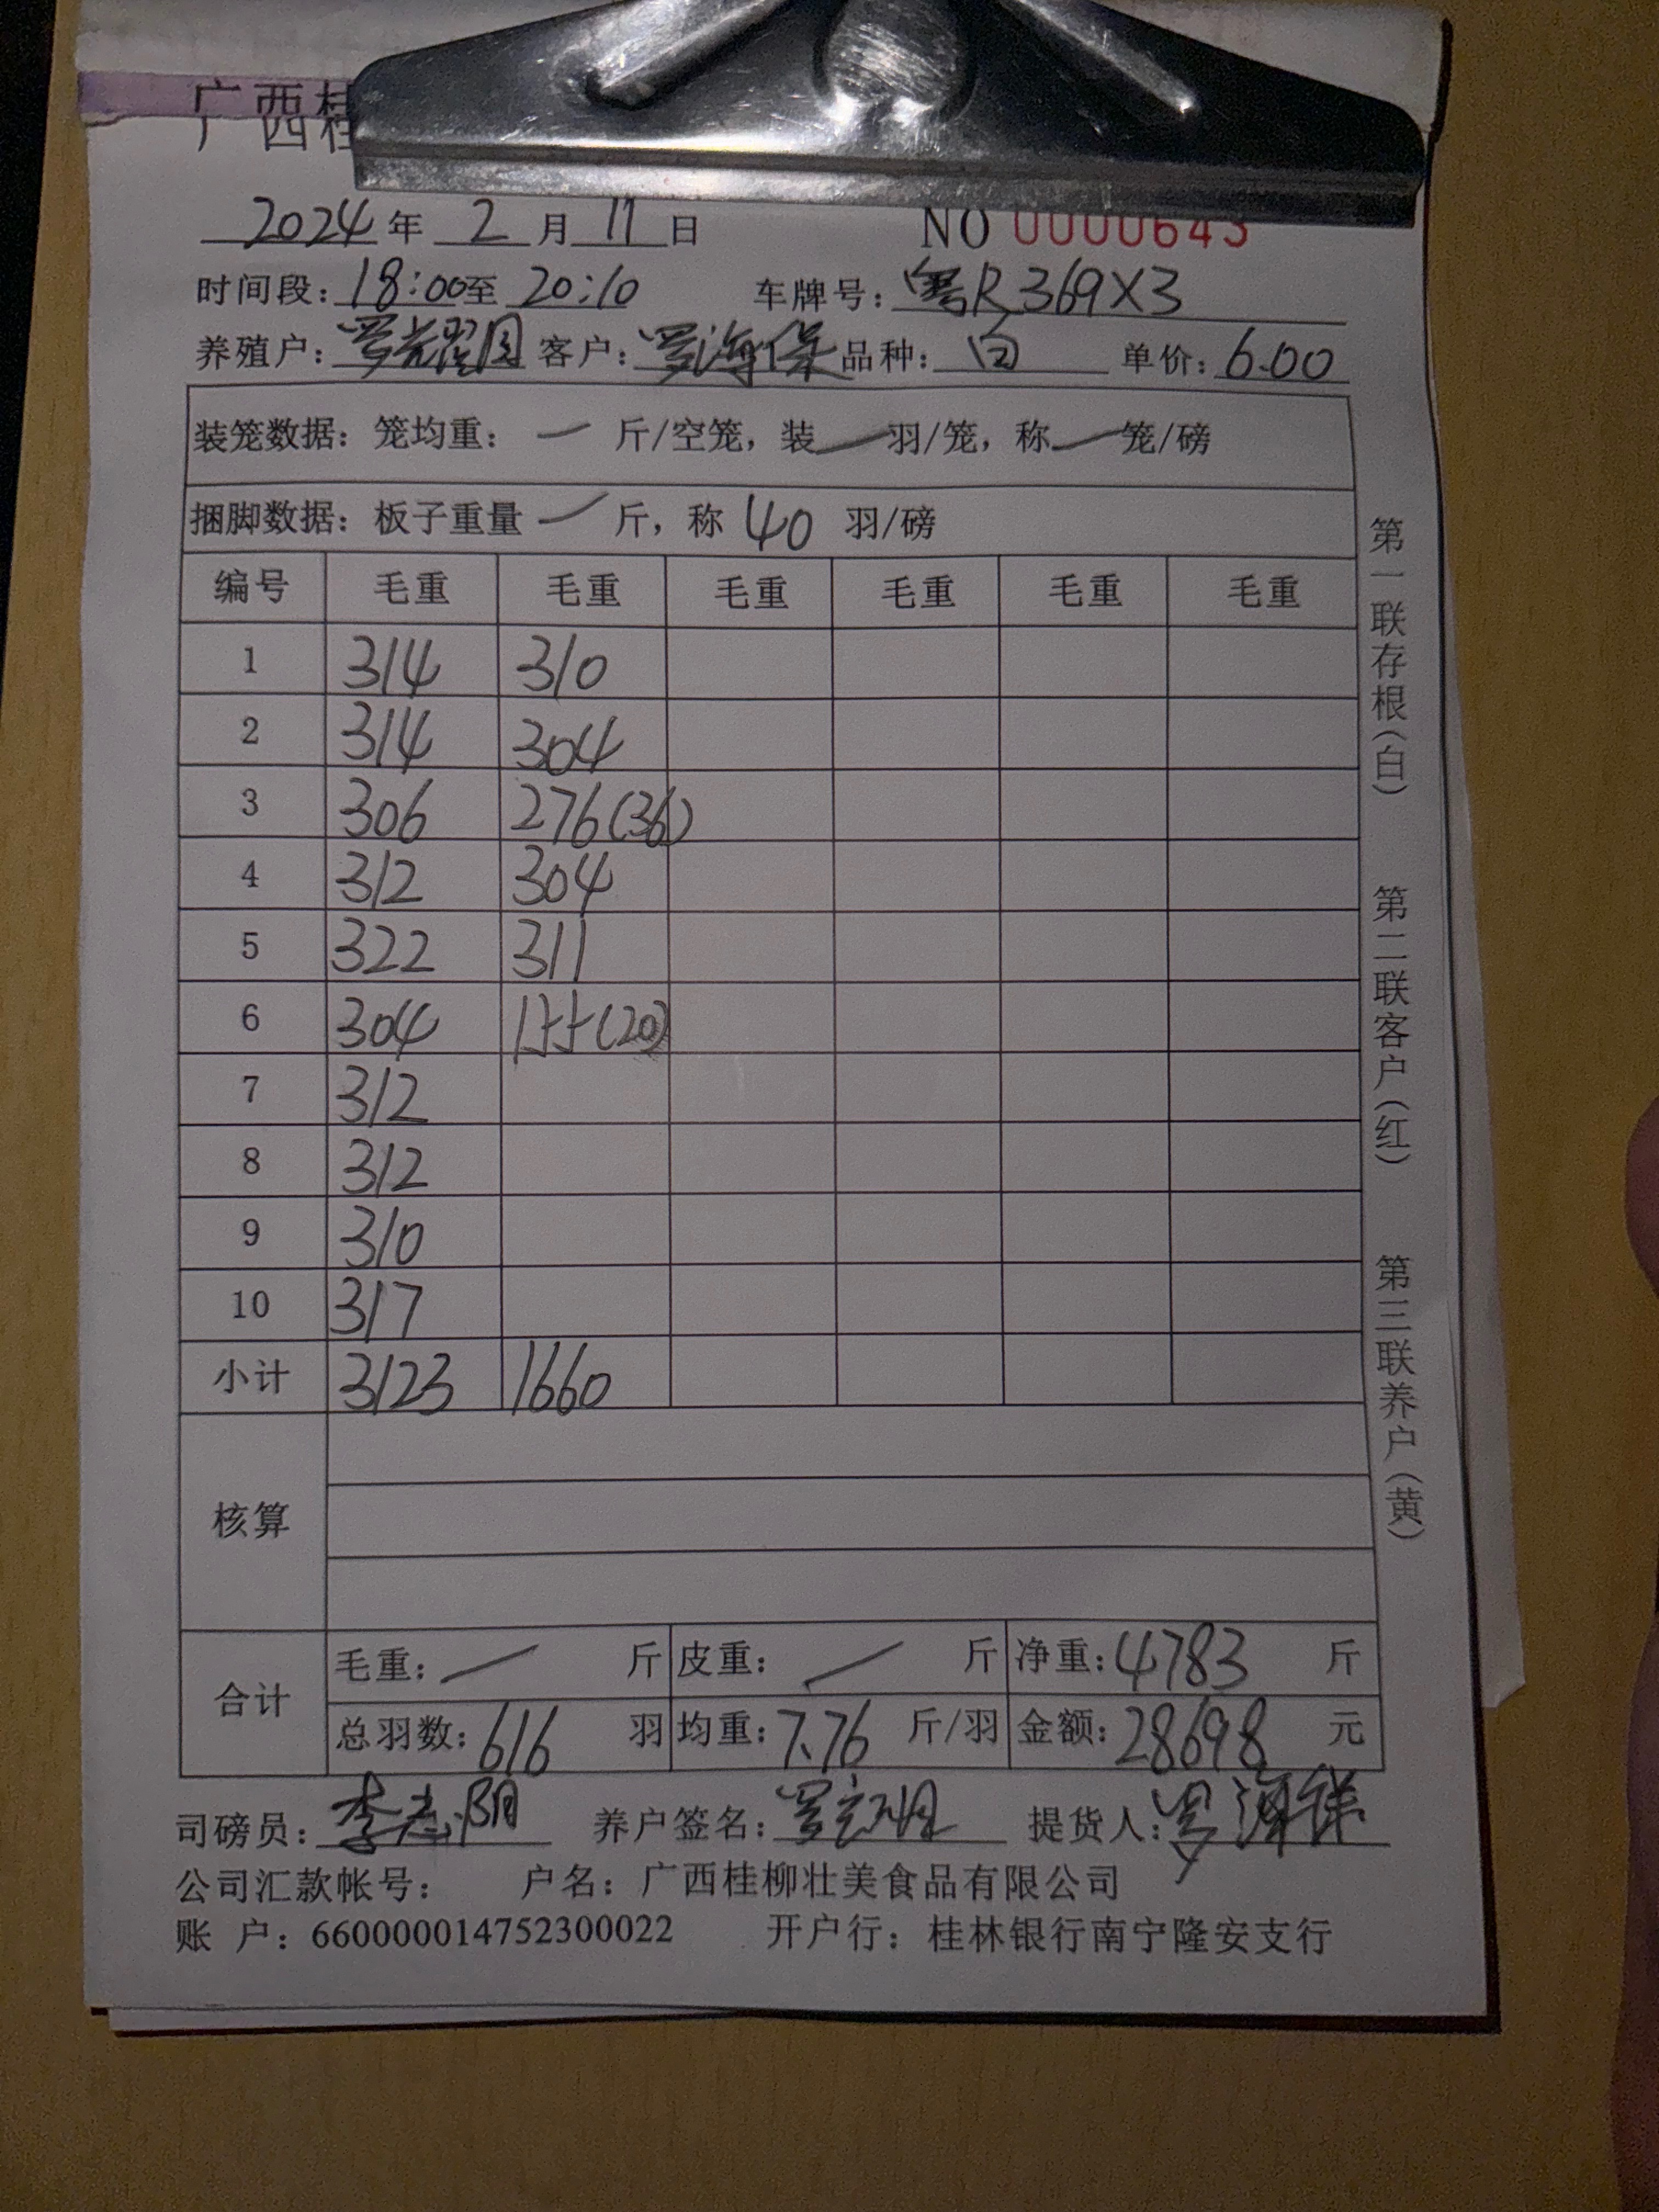 广西桂
2024年 2月11日 NO 0000643
时间段：18:00至 20:10 车牌号：粤R369X3
养殖户：罗耀周 客户：罗海保 品种：白 单价：6.00
装笼数据：笼均重：— 斤/空笼，装—羽/笼，称—笼/磅
捆脚数据：板子重量 — 斤，称 40 羽/磅
编号 毛重 毛重 毛重 毛重 毛重 毛重
1 314 310
2 314 304
3 306 276(36)
4 312 304
5 322 311
6 304 155(20)
7 312
8 312
9 310
10 317
小计 3123 1660
核算
合计 毛重：— 斤 皮重：— 斤 净重：4783 斤
总羽数：616 羽 均重：7.76 斤/羽 金额：28698 元
司磅员：李志阴 养户签名：罗 提货人：罗海
公司汇款帐号： 户名：广西桂柳壮美食品有限公司
账 户：660000014752300022 开户行：桂林银行南宁隆安支行
第一联存根（白） 第二联客户（红） 第三联养户（黄）